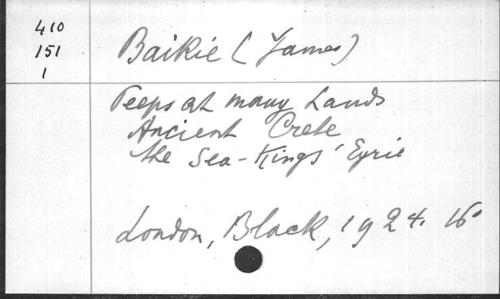 410
151
1
Baikie (James)
Peeps at many Lands
Ancient Crete
the Sea-Kings' Eyrie
London, Black, 1924. 16°